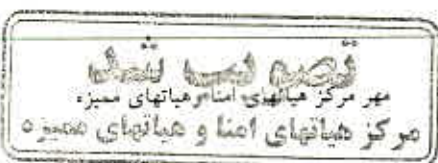 مهر مرکز هیاتهای امنا و هیاتهای ممیزه
مرکز هیاتهای امنا و هیاتهای ممیزه